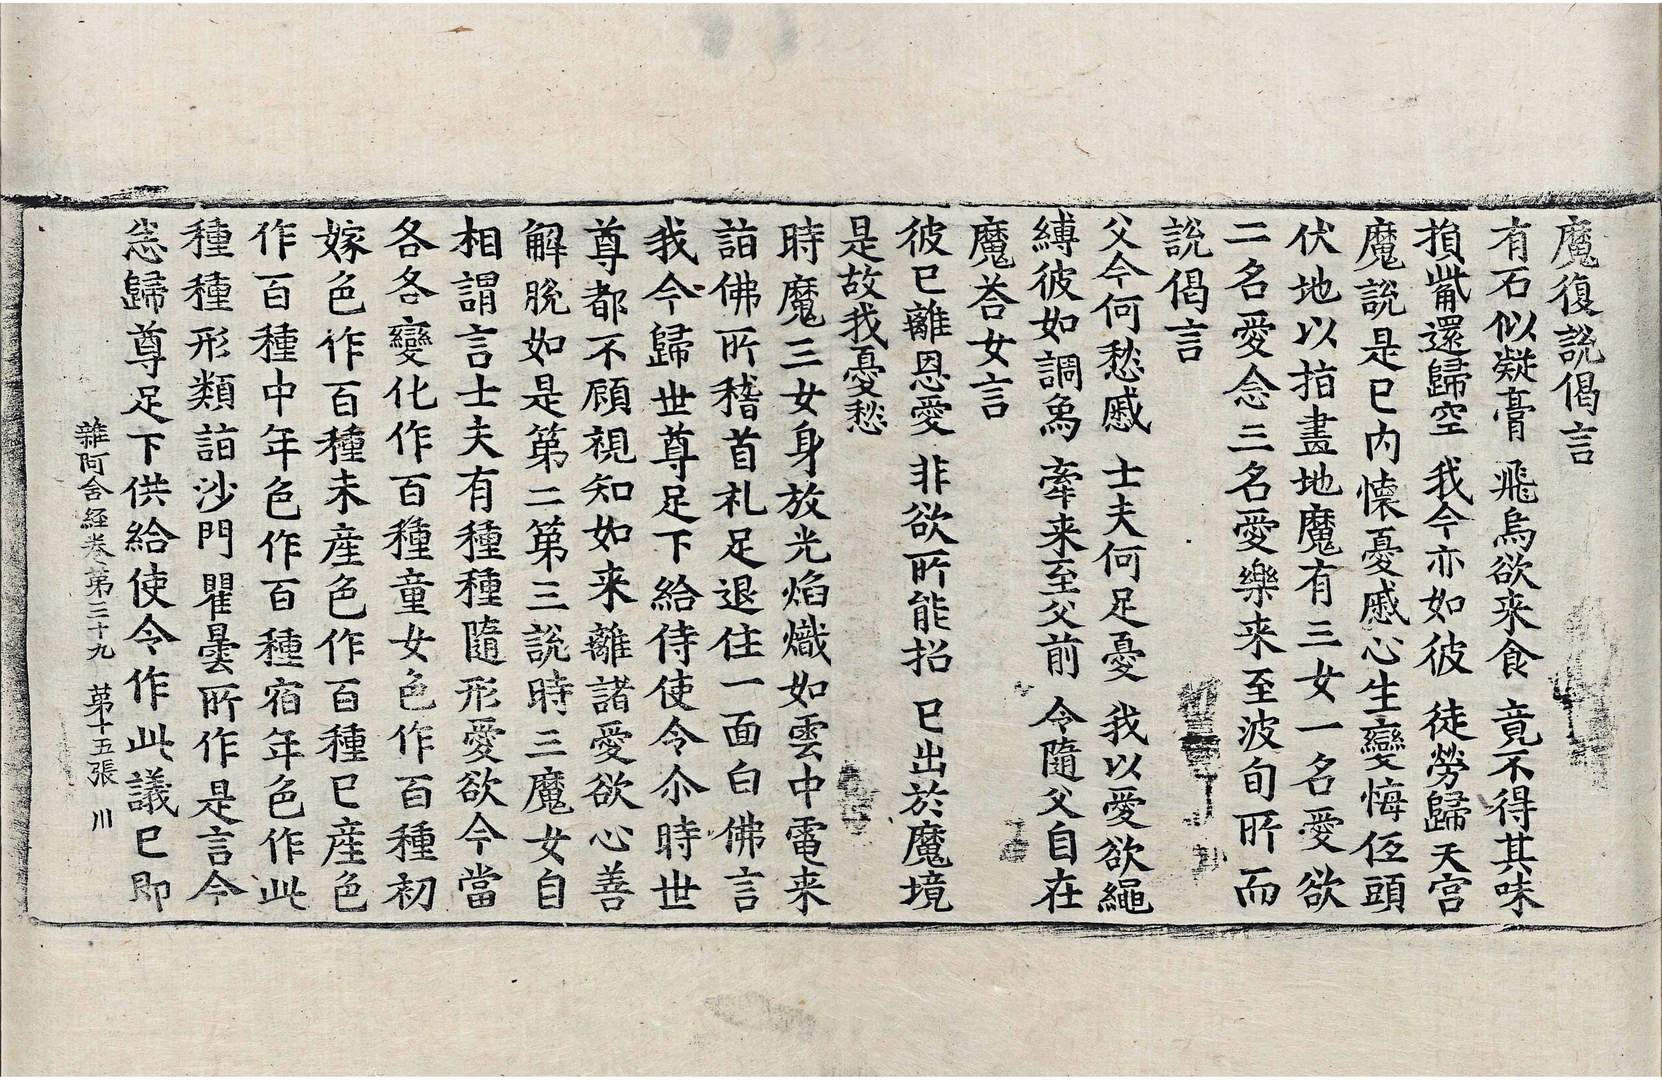 魔復説偈言
有石似凝膏 飛烏欲來食 竟不得其味
損觜還歸空 我今亦如彼 徒勞歸天宮
魔説是已内懐憂慼心生變悔低頭
伏地以指畫地魔有三女一名愛欲
二名愛念三名愛樂来至波旬所而
説偈言
父今何愁慼 士夫何足憂 我以愛欲繩
縛彼如調象 牽来至父前 令隨父自在
魔荅女言
彼已離恩愛 非欲所能招 已出於魔境
是故我憂愁
時魔三女身放光焰熾如雲中電来
詣佛所稽首礼足退住一面白佛言
我今歸世尊足下給侍使令尒時世
尊都不顧視知如来離諸愛欲心善
解脱如是第二第三説時三魔女自
相謂言士夫有種種隨形愛欲今當
各各變化作百種童女色作百種初
嫁色作百種未産色作百種已産色
作百種中年色作百種宿年色作此
種種形類詣沙門瞿曇所作是言今
悉歸尊足下供給使令作此議已即
雜阿含経巻第三十九 第十五張 川